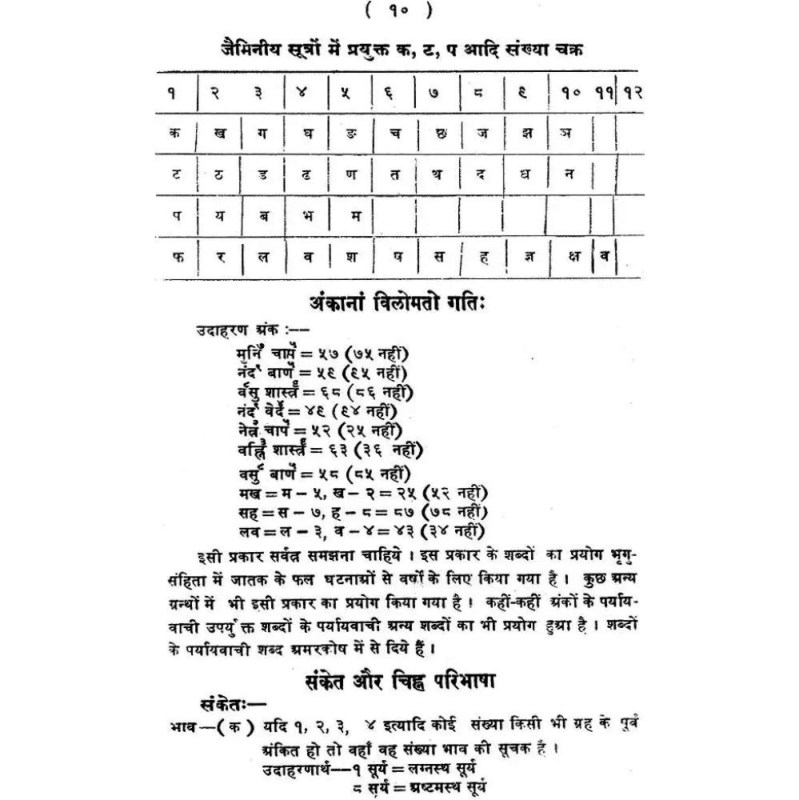 ( १० )
जैमिनीय सूत्रों में प्रयुक्त क, ट, प आदि संख्या चक्र
१ २ ३ ४ ५ ६ ७ ८ ९ १० ११ १२
क ख ग घ ङ च छ ज झ ञ
ट ठ ड ढ ण त थ द ध न
प य ब भ म
फ र ल व श ष स ह ज्ञ क्ष व
अंकानां विलोमतो गतिः
उदाहरण अंक :--
मुनि चाप = ५७ (७५ नहीं)
नंद बाण = ५९ (९५ नहीं)
वसु शास्त्र = ६८ (८६ नहीं)
नंद वेद = ४९ (९४ नहीं)
नेत्र चाप = ५२ (२५ नहीं)
वह्नि शास्त्र = ६३ (३६ नहीं)
वसु बाण = ५८ (८५ नहीं)
मख = म - ५, ख - २ = २५ (५२ नहीं)
सह = स - ७, ह - ८ = ८७ (७८ नहीं)
लव = ल - ३, व - ४ = ४३ (३४ नहीं)
इसी प्रकार सर्वत्र समझना चाहिये । इस प्रकार के शब्दों का प्रयोग भृगु-
संहिता में जातक के फल घटनाओं से वर्षों के लिए किया गया है । कुछ अन्य
ग्रन्थों में भी इसी प्रकार का प्रयोग किया गया है । कहीं-कहीं अंकों के पर्याय-
वाची उपर्युक्त शब्दों के पर्यायवाची अन्य शब्दों का भी प्रयोग हुआ है । शब्दों
के पर्यायवाची शब्द अमरकोष में से दिये हैं ।
संकेत और चिह्न परिभाषा
संकेतः—
भाव—( क ) यदि १, २, ३, ४ इत्यादि कोई संख्या किसी भी ग्रह के पूर्व
अंकित हो तो वहाँ वह संख्या भाव की सूचक है ।
उदाहरणार्थ--१ सूर्य = लग्नस्थ सूर्य
८ सूर्य = अष्टमस्थ सूर्य